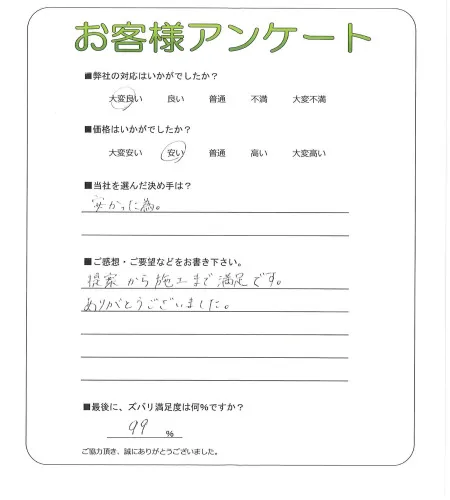 お客様アンケート
■弊社の対応はいかがでしたか?
大変良い 良い 普通 不満 大変不満
■価格はいかがでしたか?
大変安い 安い 普通 高い 大変高い
■当社を選んだ決め手は?
安かった為。
■ご感想・ご要望などをお書き下さい。
提案から施工まで満足です。
ありがとうございました。
■最後に、ズバリ満足度は何%ですか?
99 %
ご協力頂き、誠にありがとうございました。